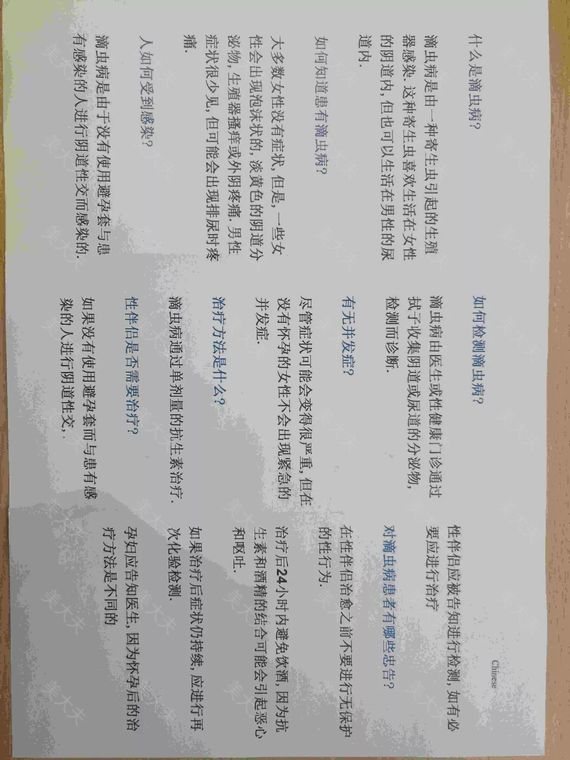 Chinese
什么是滴虫病?
滴虫病是由一种寄生虫引起的生殖
器感染. 这种寄生虫喜欢生活在女性
的阴道内, 但也可以生活在男性的尿
道内.
如何知道患有滴虫病?
大多数女性没有症状, 但是, 一些女
性会出现泡沫状的, 淡黄色的阴道分
泌物, 生殖器搔痒或外阴疼痛. 男性
症状很少见, 但可能会出现排尿时疼
痛.
人如何受到感染?
滴虫病是由于没有使用避孕套与患
有感染的人进行阴道性交而感染的.
如何检测滴虫病?
滴虫病由医生或性健康门诊通过
拭子收集阴道或尿道的分泌物,
检测而诊断.
有无并发症?
尽管症状可能会变得很严重, 但在
没有怀孕的女性不会出现紧急的
并发症.
治疗方法是什么?
滴虫病通过单剂量的抗生素治疗.
性伴侣是否需要治疗?
如果没有使用避孕套而与患有感
染的人进行阴道性交,.
性伴侣应被告知进行检测, 如有必
要应进行治疗
对滴虫病患者有哪些忠告?
在性伴侣治愈之前不要进行无保护
的性行为.
治疗后24小时内避免饮酒, 因为抗
生素和酒精的结合可能会引起恶心
和呕吐.
如果治疗后症状仍持续, 应进行再
次化验检测.
孕妇应告知医生, 因为怀孕后的治
疗方法是不同的